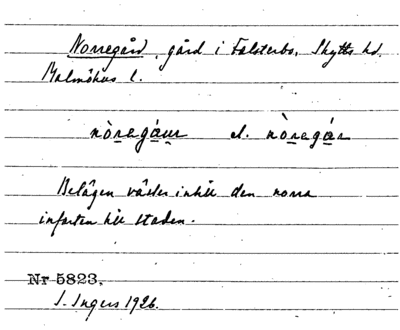 Norregård, gård i Falsterbo, Skytts hd.
Malmöhus l.
nòregáur el. nòregár
Belägen väster intill den norra
infarten till staden.
Nr 5823.
I. Ingers 1926.